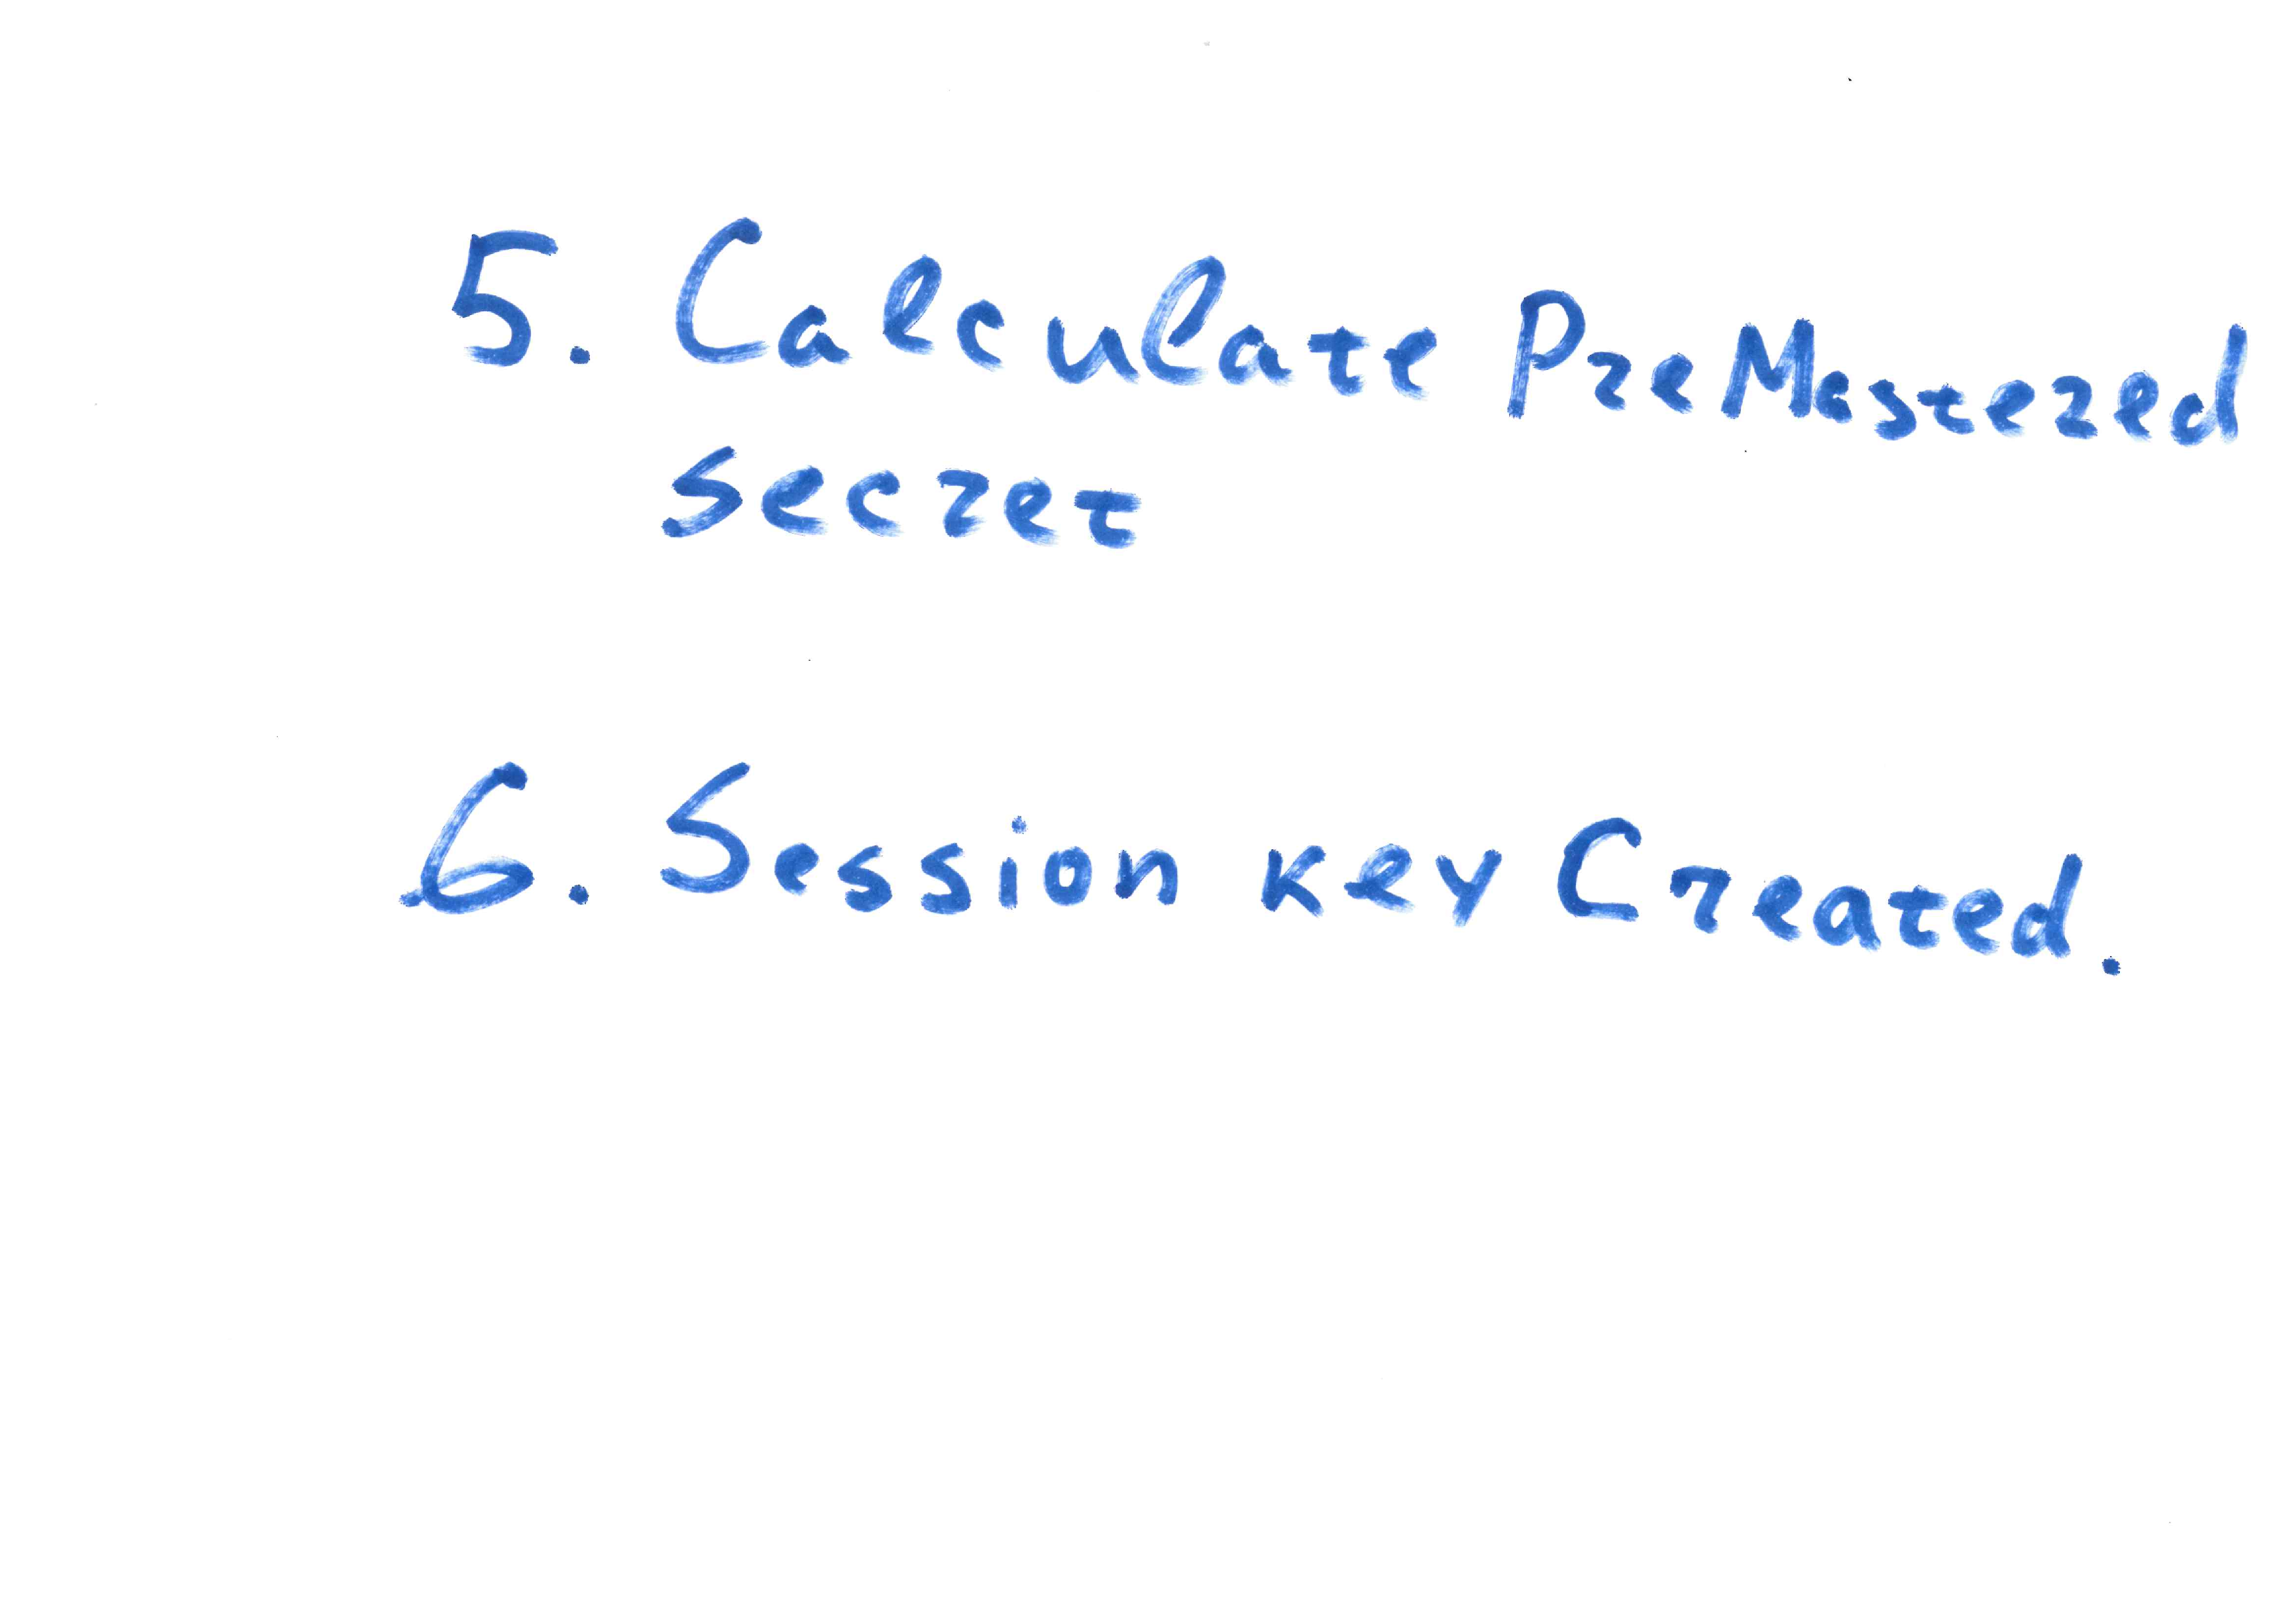 5. Calculate PreMastered
secret
6. Session key Created.